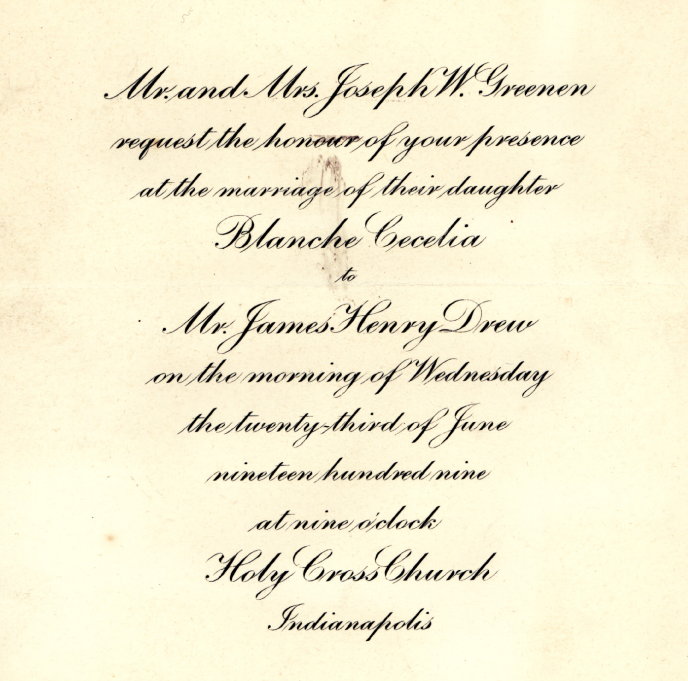 Mr. and Mrs. Joseph W. Greenen
request the honour of your presence
at the marriage of their daughter
Blanche Cecelia
to
Mr. James Henry Drew
on the morning of Wednesday
the twenty-third of June
nineteen hundred nine
at nine o'clock
Holy Cross Church
Indianapolis